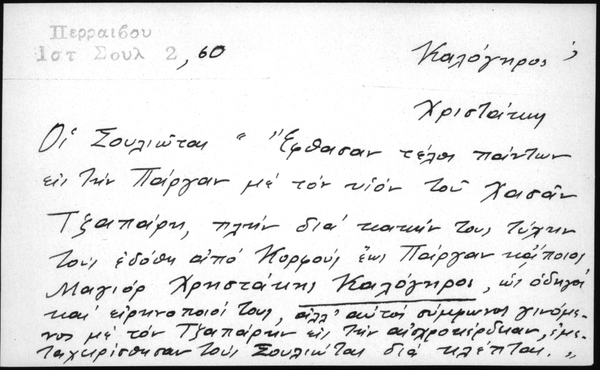 Περραιβου
Ιστ Σουλ 2, 60
Καλόγηρος,
Χριστάκη
Οἱ Σουλιῶται "Ἔφθασαν τέλος πάντων
εἰς τὴν Πάργαν μὲ τὸν υἱὸν τοῦ Χασὰν
Τζαπάρη, πλὴν διὰ κακήν τους τύχην
τοὺς ἐδόθη ἀπὸ Κορφοὺς ἕως Πάργαν κάποιος
Μαγιὸρ Χρηστάκης Καλόγηρος, ὡς ὁδηγὸς
καὶ εἰρηνοποιός τους, ἀλλ' αὐτὸς σύμφωνος γινόμε-
νος μὲ τὸν Τζαπάρην εἰς τὴν αἰσχροκέρδειαν, ἐμε-
ταχειρίσθησαν τοὺς Σουλιῶται διὰ κλέπται."